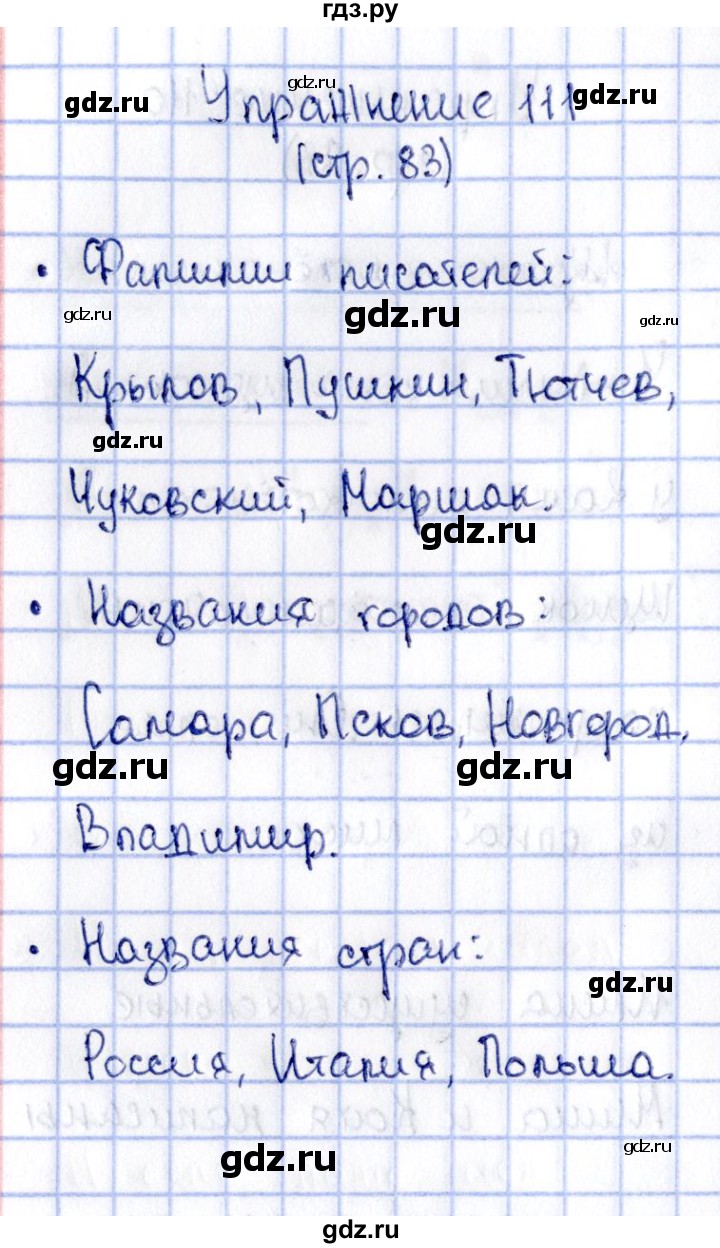 гдз.ру
gdz.ru
gdz.ru
Упражнение 111
gdz.ru
(стр. 83)
• Фамилии писателей:
gdz.ru
gdz.ru
gdz.ru
Крылов, Пушкин, Тютчев,
gdz.ru
Чуковский, Маршак.
gdz.ru
• Названия городов:
Самара, Псков, Новгород,
gdz.ru
gdz.ru
Владимир.
• Названия стран:
gdz.ru
Россия, Италия, Польша.
gdz.ru
gdz.ru
gdz.ru